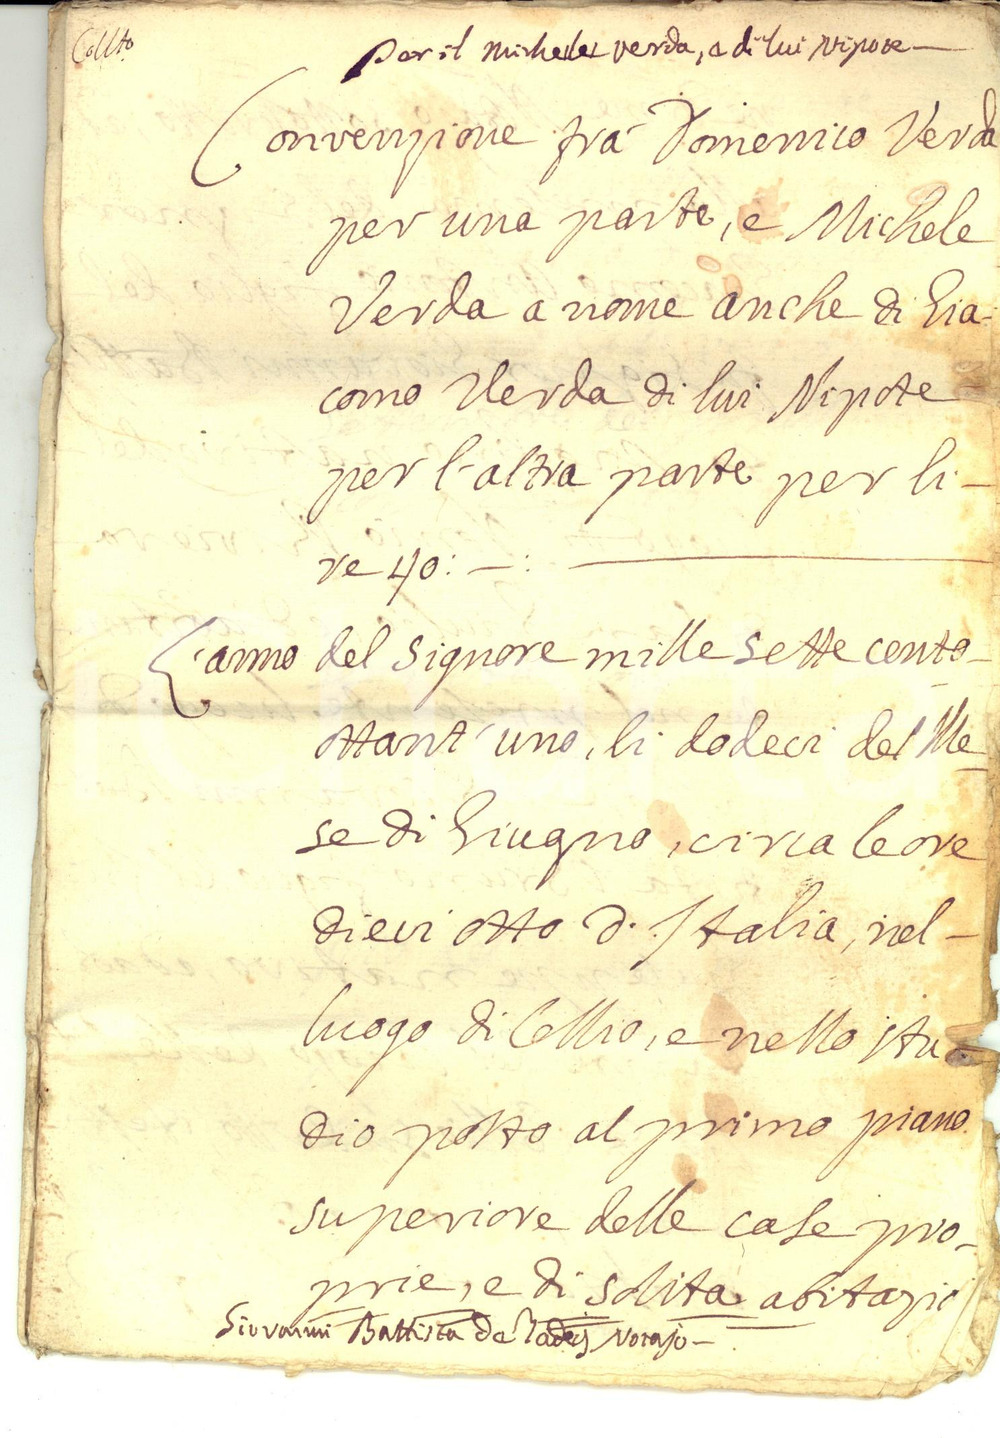 Collto
Per il Michele verda, e di lui Nipote —
Convenzione frà Domenico Verda
per una parte, e Michele
Verda a nome anche di Gia-
como Verda di lui Nipote
per l'altra parte per li-
re 40: — :
L'anno del Signore mille sette cento-
ottant'uno, li dodeci del Me-
se di Giugno, circa le ore
dieci otto d'Italia, nel-
luogo di Cellio, e nello stu-
dio posto al primo piano
superiore delle case pro-
prie, e di solita abitazio
Giovanni Battista De Nottajo —